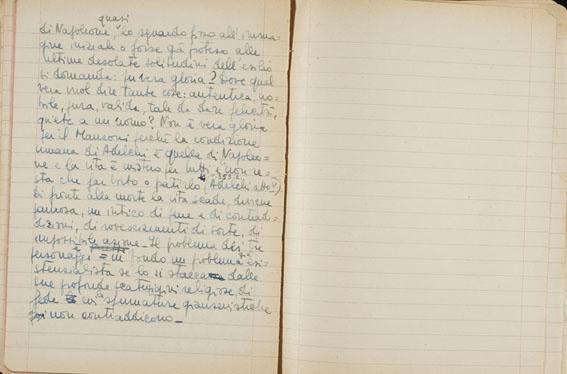 quasi
di Napoleone, lo sguardo fisso all'imma-
gine iniziale o forse già proteso alle
ultime desolate solitudini dell'esilio
si domanda: fu vera gloria? dove quel
vera vuol dire tante cose: autentica, no-
bile, pura, valida, tale da dare felicità,
quiete a un uomo? Non è vera gloria
per il Manzoni perché la condizione
umana di Adelchi è quella di Napoleo-
ne e la vita è mistero per tutti e "non re-
sta che far torto o patirlo" (Adelchi atto V).
Di fronte alla morte la vita scade, diviene
un intrico di pene e di contrad-
dizioni, di rovesciamenti di sorte, di
impossibile azione. Il problema dei tre
personaggi è in fondo un problema esi-
stenzialista se lo si stacca dalle
sue profonde scaturigini religiose, di
fede in sfumature giansenistiche
non contraddicono_